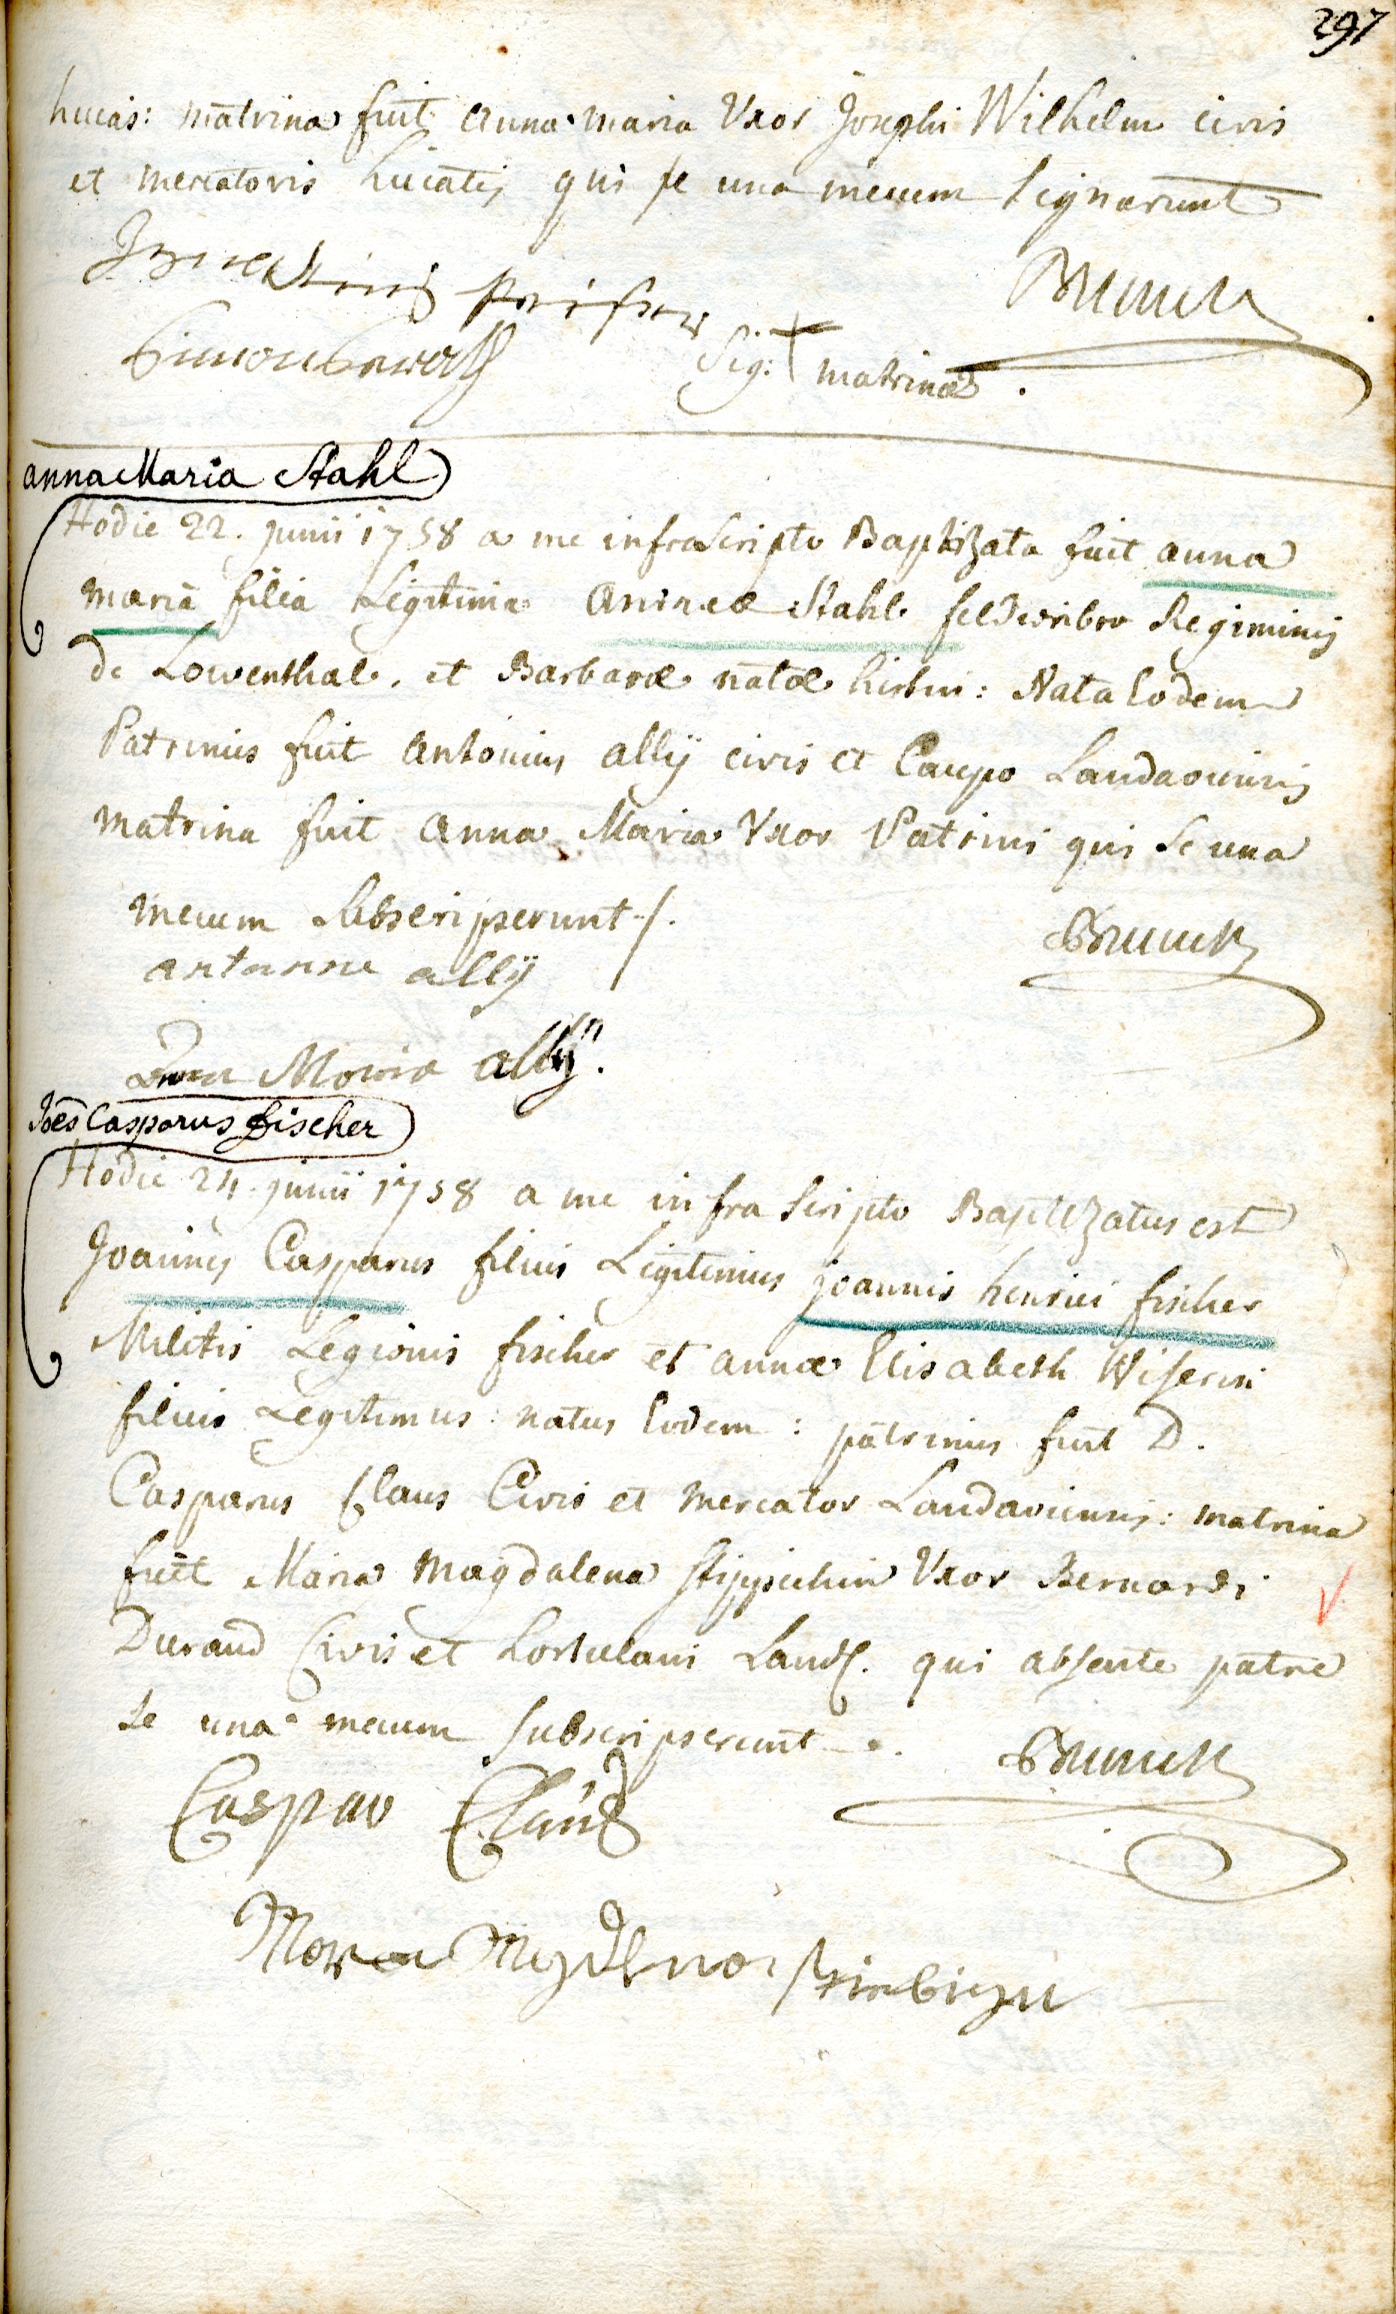 297
hucas: matrina fuit anna maria Uxor Josephi Wilhelm civis
et mercatoris hucatis, qui se una mecum signarunt
Brunck
Sig: + matrinæ.
anna Maria Stahl
Hodie 22. junii 1758 a me infrascripto Baptizata fuit anna
maria filia Legitima Andreæ Stahl feldweiber Regiminis
de Lowenthal, et Barbaræ natæ : Nata Eodem
Patrinus fuit antonius allÿ civis et Caupo Landaviensis
matrina fuit anna Maria Uxor Patrini qui se una
mecum subscripserunt ./.
antonne allÿ
Brunck
Anna Maria allÿ.
Joes Casparus fischer
Hodie 24. junii 1758 a me infra scripto Baptizatus est
Joannes Casparus filius Legitimus joannis henrici fischer
Militis Legionis fischer et annæ Elisabeth Wiserin
filius Legitimus: natus Eodem: patrinus fuit D.
Casparus Claus Civis et mercator Landaviensis: matrina
fuit Maria Magdalena Uxor Bernardi
Durand Civis et hortulani Land. qui absente patre
se una mecum subscripserunt.
Brunck
Caspar Claus
Maria